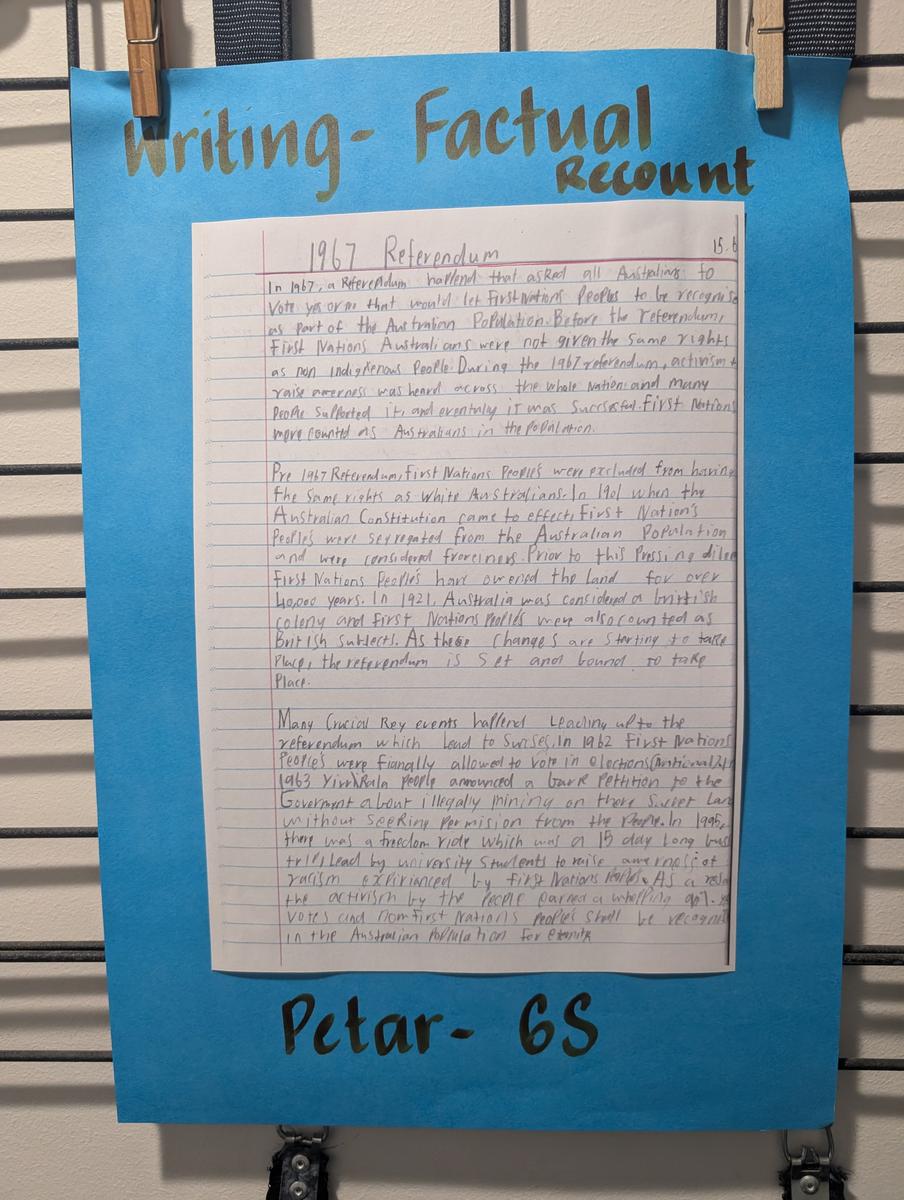 Writing- Factual
Recount
1967 Referendum
15.6
In 1967, a Referendum happend that asked all Australians to
vote yes or no that would let First Nations Peoples to be recognise
as part of the Australian Population. Before the referendum,
First Nations Australians were not given the same rights
as non indigenous People. During the 1967 referendum, activism
raise awerness was heard across the whole Nation and many
People supported it, and eventaly it was Succesful. First Nations
were counted as Australians in the population.
Pre 1967 Referendum, First Nations People's were excluded from having
the same rights as white Australians. In 1901 when the
Australian Constitution came to effect, First Nation's
People's were segregated from the Australian Population
and were considered Prior to this Pressing
First Nations People's have owened the land for over
40,000 years. In 1921, Australia was considered a british
colony and First Nations People's were also counted as
British subjects. As these changes are starting to take
Place, the referendum is set and bound to take
Place.
Many Crucial Key events happend Leading up to the
referendum which lead to In 1962 First Nations
People's were fianally allowed to vote in elections
1963 People announced a bark Petition to the
Goverment about illegally mining on there
without seeking Permision from the People. In
there was a freedom ride which was a 15 day long bus
trip, lead by university students to raise of
racism by First Nations People. As a
the activism by the People earned a whopping
votes and First Nations People's shall be
in the Australian Population for
Petar- 6S